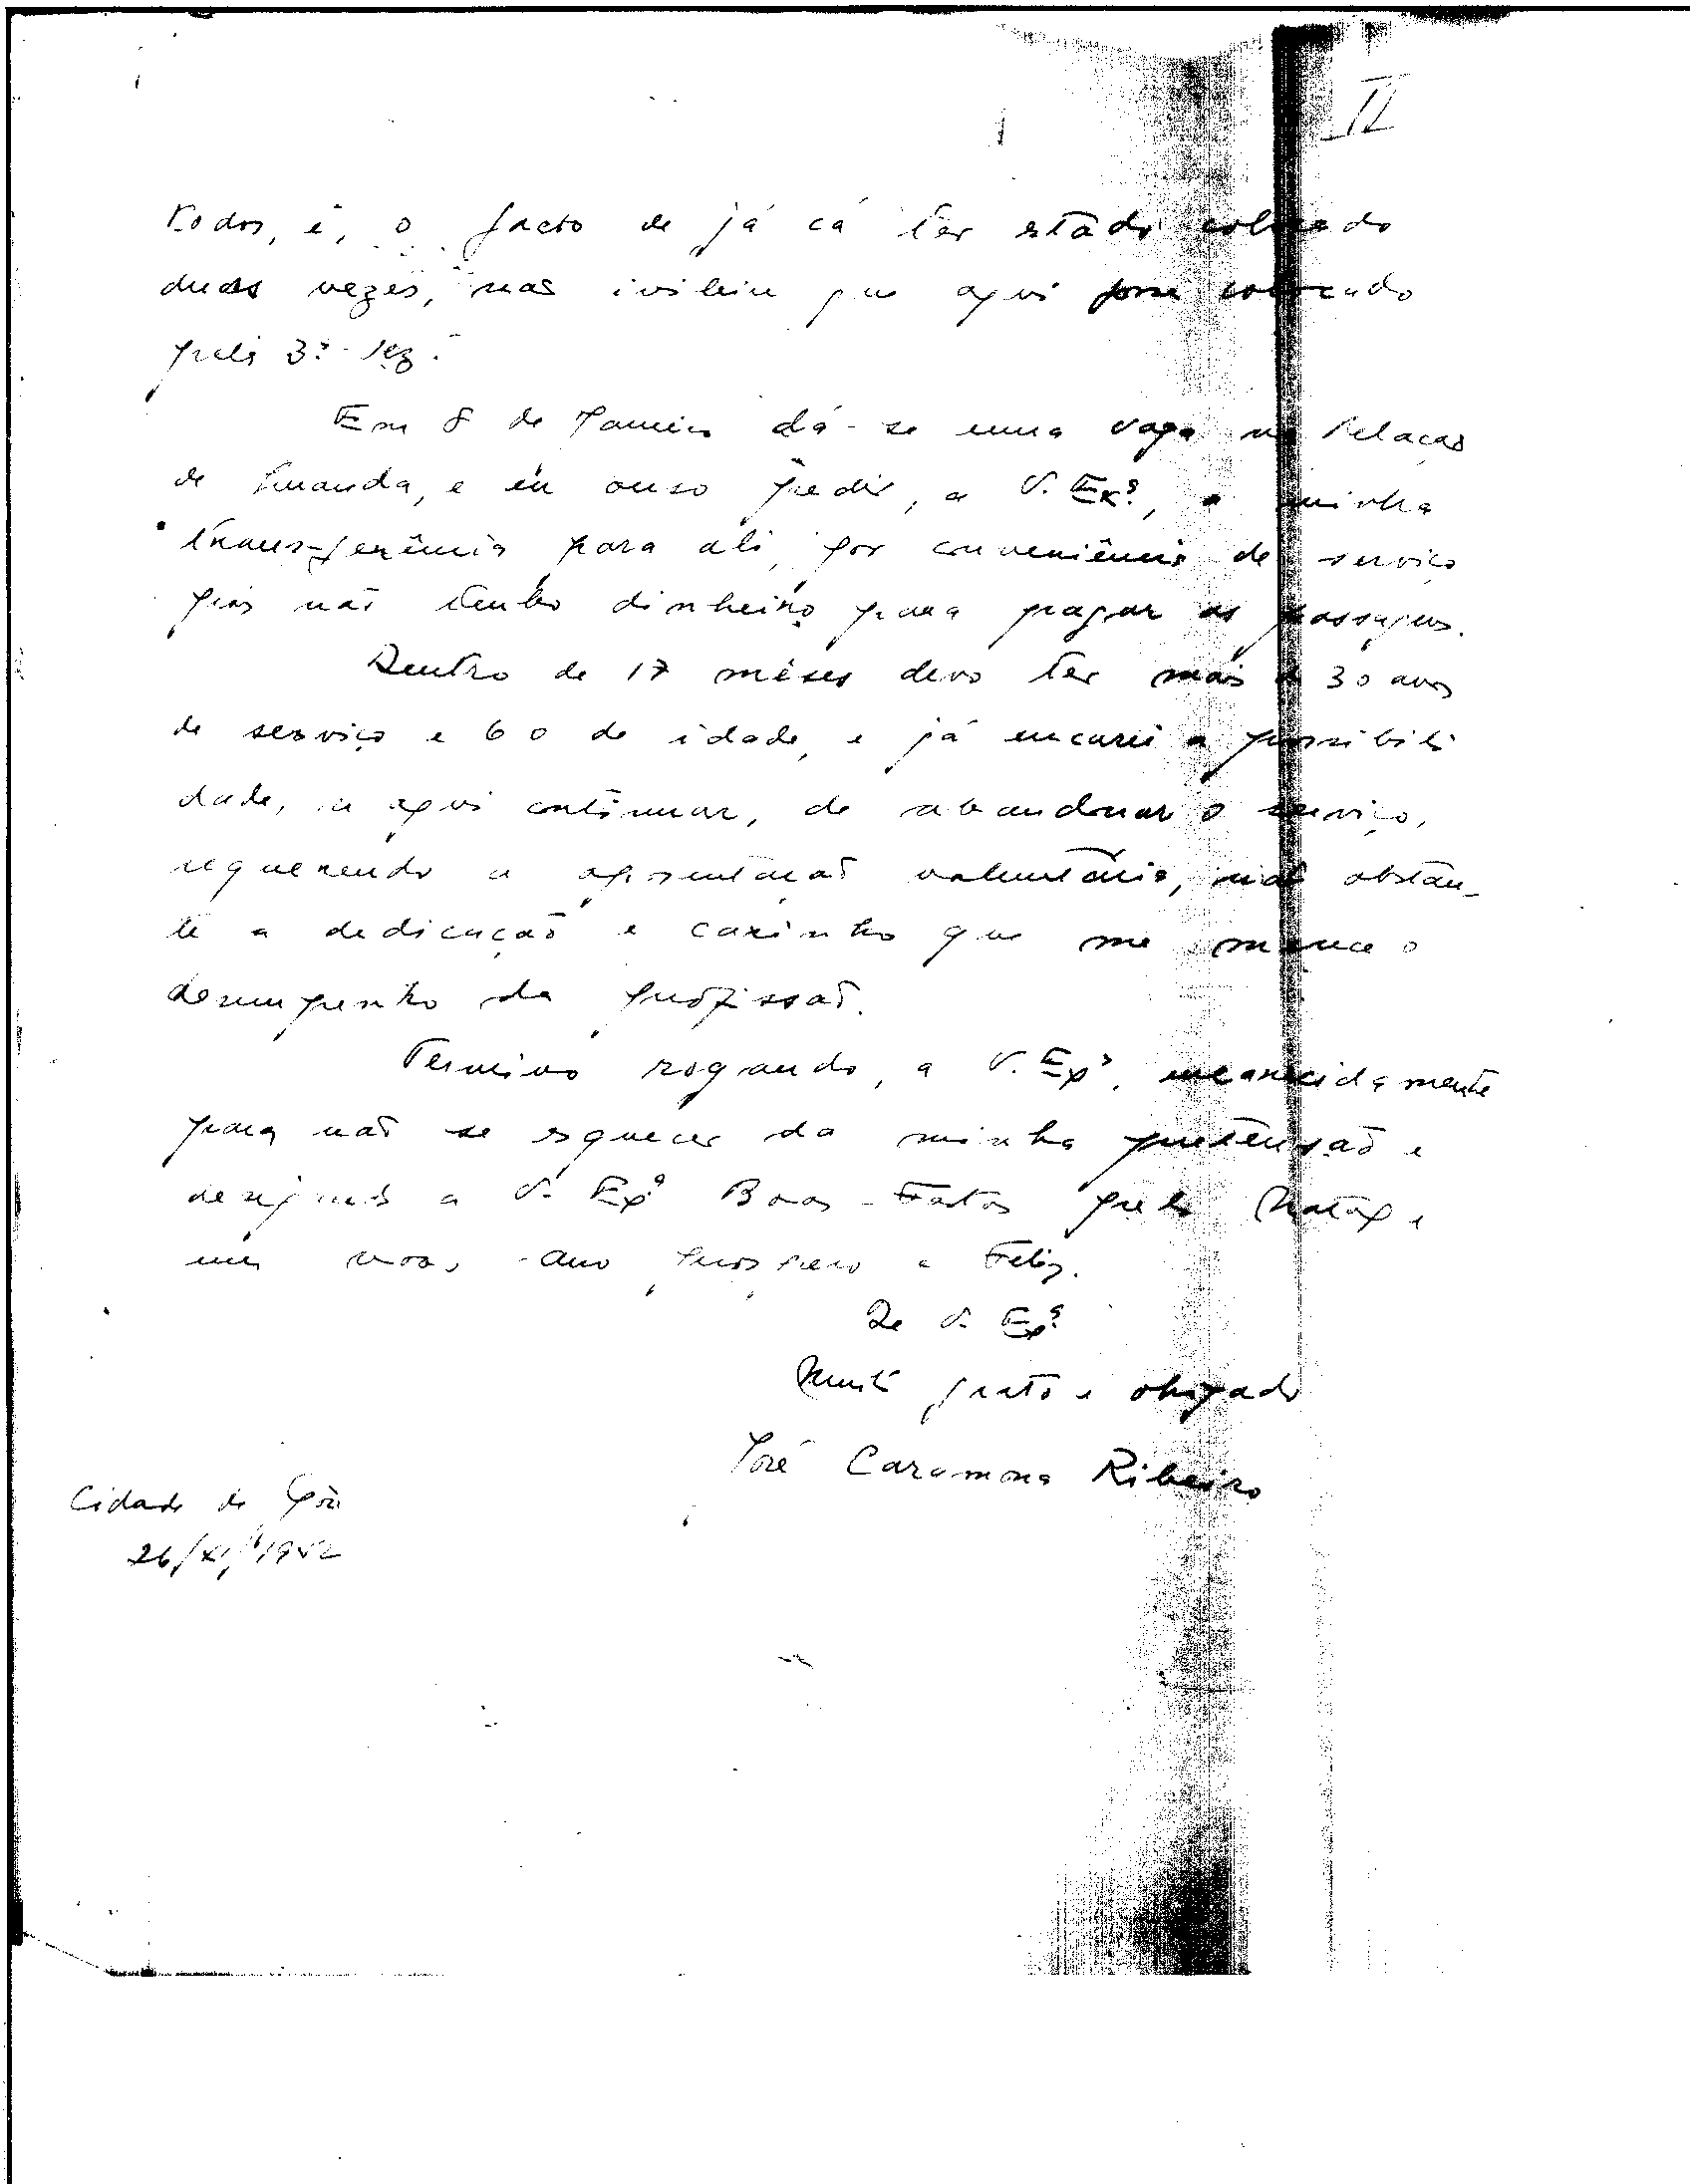 II
todos, é, o facto de já cá ter estado colocado
duas vezes, nas inibiu que aqui fosse colocado
pela 3ª vez.
Em 8 de Janeiro dá-se uma vaga na Relação
de Luanda, e eu ouso pedir, a V. Exª, a minha
transferência para ali, por conveniência de serviço
pois não tenho dinheiro para pagar as passagens.
Dentro de 17 mêses devo ter mais de 30 anos
de serviço e 60 de idade, e já encarei a possibili
dade, a aqui continuar, de abandonar o serviço,
requerendo a aposentação voluntária, não obstan-
te a dedicação e carinho que me merece o
desempenho da profissão.
Termino rogando, a V. Exª, encarecidamente
para não se esquecer da minha pretensão e
desejando a V. Exª Boas-Festas pelo Natal e
um novo ano prospero e Feliz.
De V. Exª
Muito grato e obrigado
José Caramona Ribeiro
Cidade de Gôa
26/XI/1952